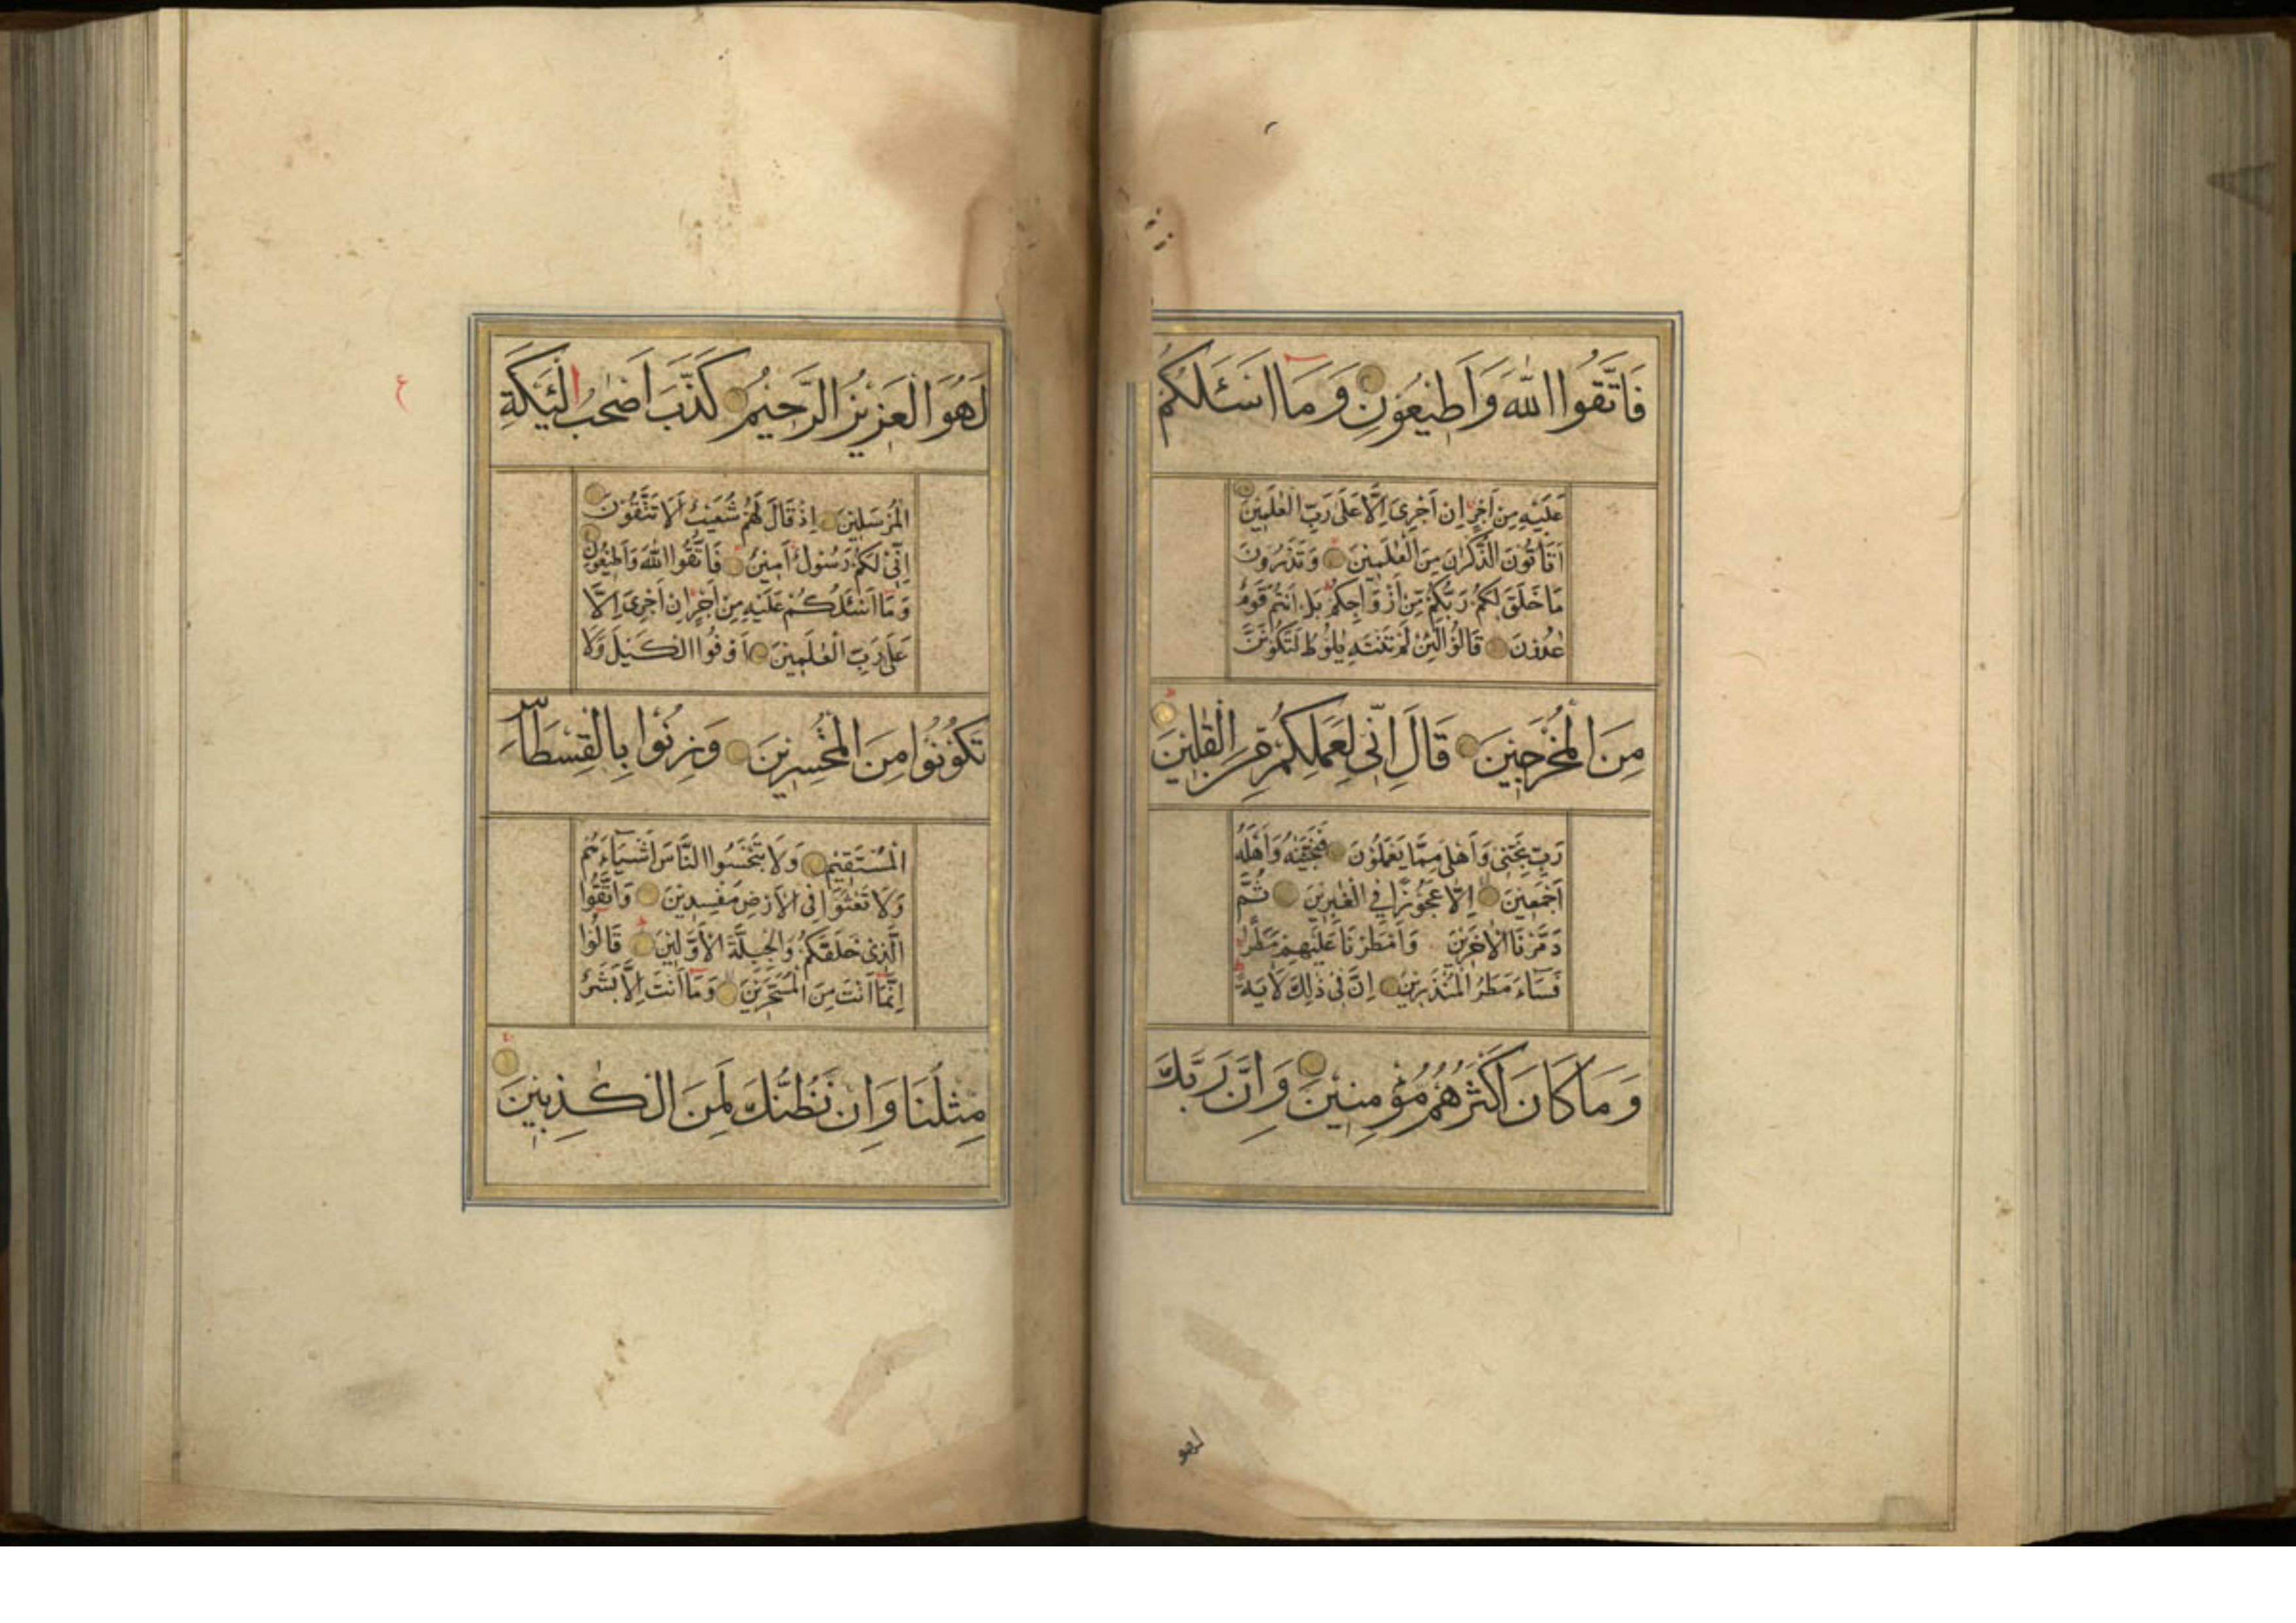 فَاتَّقُوا اللّٰهَ وَاَطِيْعُوْنِ وَمَا اَسْـَٔلُكُمْ
عَلَيْهِ مِنْ اَجْرٍ اِنْ اَجْرِىَ اِلَّا عَلٰى رَبِّ الْعٰلَمِيْنَ
اَتَاْتُوْنَ الذُّكْرَانَ مِنَ الْعٰلَمِيْنَ وَتَذَرُوْنَ
مَا خَلَقَ لَكُمْ رَبُّكُمْ مِّنْ اَزْوَاجِكُمْ بَلْ اَنْتُمْ قَوْمٌ
عٰدُوْنَ قَالُوْا لَئِنْ لَمْ تَنْتَهِ يٰلُوْطُ لَتَكُوْنَنَّ
مِنَ الْمُخْرَجِيْنَ قَالَ اِنِّى لِعَمَلِكُمْ مِّنَ الْقَالِيْنَ
رَبِّ نَجِّنِىْ وَاَهْلِىْ مِمَّا يَعْمَلُوْنَ فَنَجَّيْنٰهُ وَاَهْلَهُ
اَجْمَعِيْنَ اِلَّا عَجُوْزًا فِى الْغٰبِرِيْنَ ثُمَّ
دَمَّرْنَا الْاٰخَرِيْنَ وَاَمْطَرْنَا عَلَيْهِمْ مَطَرًا
فَسَآءَ مَطَرُ الْمُنْذَرِيْنَ اِنَّ فِىْ ذٰلِكَ لَاٰيَةً
وَمَا كَانَ اَكْثَرُهُمْ مُؤْمِنِيْنَ وَاِنَّ رَبَّكَ
لهو
لَهُوَ الْعَزِيْزُ الرَّحِيْمُ كَذَّبَ اَصْحٰبُ الْئَيْكَةِ
الْمُرْسَلِيْنَ اِذْ قَالَ لَهُمْ شُعَيْبٌ اَلَا تَتَّقُوْنَ
اِنِّىْ لَكُمْ رَسُوْلٌ اَمِيْنٌ فَاتَّقُوا اللّٰهَ وَاَطِيْعُوْنِ
وَمَا اَسْئَلُكُمْ عَلَيْهِ مِنْ اَجْرٍ اِنْ اَجْرِىَ اِلَّا
عَلٰى رَبِّ الْعٰلَمِيْنَ اَوْفُوا الْكَيْلَ وَلَا
تَكُوْنُوْا مِنَ الْمُخْسِرِيْنَ وَزِنُوْا بِالْقِسْطَاسِ
الْمُسْتَقِيْمِ وَلَا تَبْخَسُوا النَّاسَ اَشْيَآءَهُمْ
وَلَا تَعْثَوْا فِى الْاَرْضِ مُفْسِدِيْنَ وَاتَّقُوا
الَّذِىْ خَلَقَكُمْ وَالْجِبِلَّةَ الْاَوَّلِيْنَ قَالُوْا
اِنَّمَا اَنْتَ مِنَ الْمُسَحَّرِيْنَ وَمَا اَنْتَ اِلَّا بَشَرٌ
مِثْلُنَا وَاِنْ نَظُنُّكَ لَمِنَ الْكٰذِبِيْنَ
ع